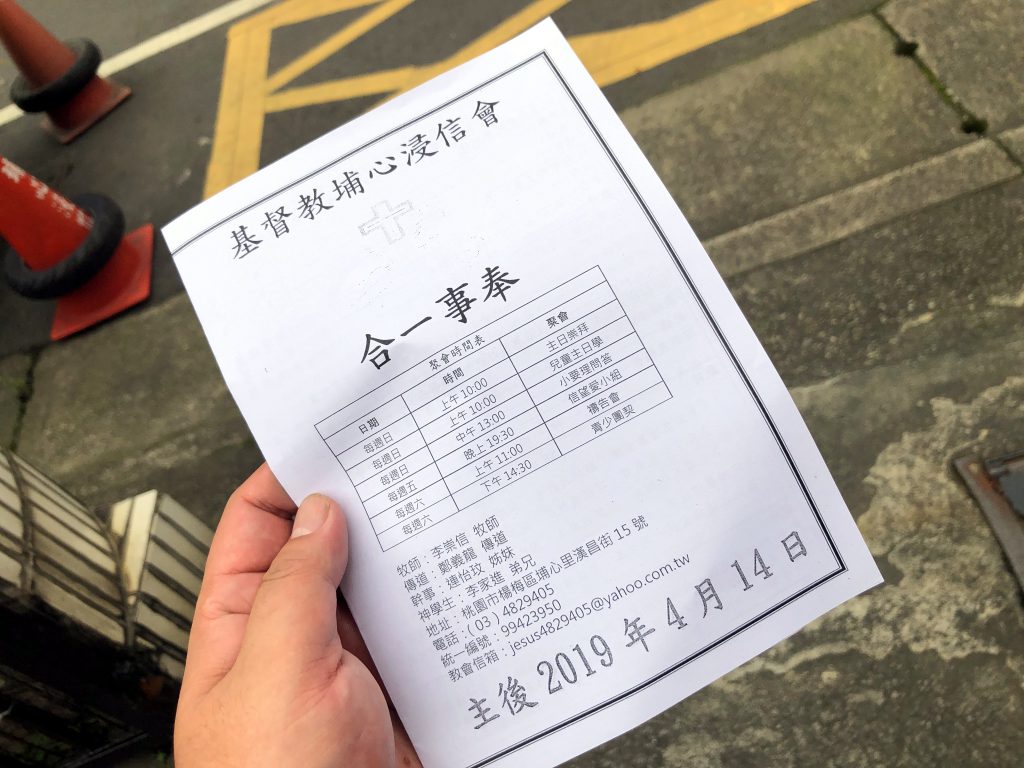 基督教埔心浸信會
合一事奉
聚會時間表
日期 時間 聚會
每週日 上午 10:00 主日崇拜
每週日 上午 10:00 兒童主日學
每週日 中午 13:00 小要理問答
每週五 晚上 19:30 信望愛小組
每週六 上午 11:00 禱告會
每週六 下午 14:30 青少團契
牧師：李崇信 牧師
傳道：鄭義龍 傳道
幹事：連怡玟 姊妹
神學生：李家進 弟兄
地址：桃園市楊梅區埔心里漢昌街 15 號
電話：(03) 4829405
統一編號：99423950
教會信箱：jesus4829405@yahoo.com.tw
主後 2019 年 4 月 14 日